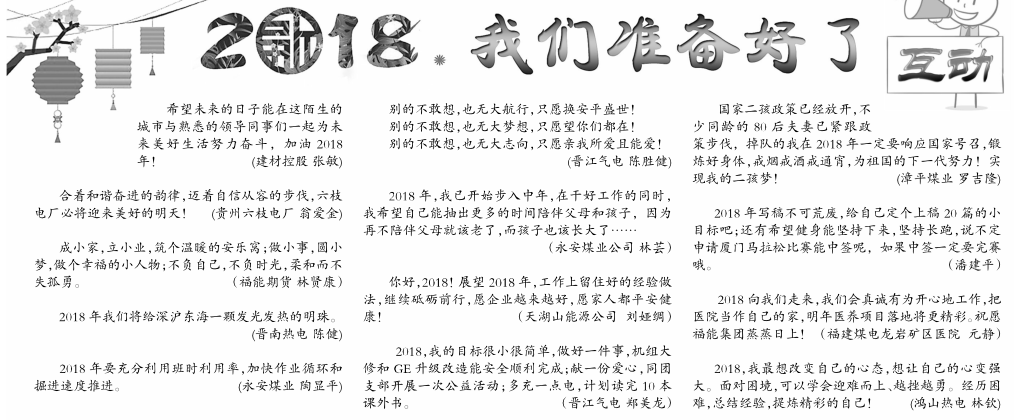 2018 我们准备好了
互动
希望未来的日子能在这陌生的
城市与熟悉的领导同事们一起为未
来美好生活努力奋斗，加油 2018
年！ (建材控股 张敏)
合着和谐奋进的韵律,迈着自信从容的步伐,六枝
电厂必将迎来美好的明天！ (贵州六枝电厂 翁爱金)
成小家,立小业,筑个温暖的安乐窝;做小事,圆小
梦,做个幸福的小人物;不负自己,不负时光,柔和而不
失孤勇。 (福能期货 林贤康)
2018 年我们将给深沪东海一颗发光发热的明珠。
(晋南热电 陈健)
2018 年要充分利用班时利用率,加快作业循环和
掘进速度推进。 (永安煤业 陶显平)
别的不敢想,也无大航行,只愿换安平盛世！
别的不敢想,也无大梦想,只愿望你们都在！
别的不敢想,也无大志向,只愿亲我所爱且能爱！
(晋江气电 陈胜健)
2018 年,我已开始步入中年,在干好工作的同时,
我希望自己能抽出更多的时间陪伴父母和孩子，因为
再不陪伴父母就该老了,而孩子也该长大了……
(永安煤业公司 林芸)
你好,2018！展望 2018 年,工作上留住好的经验做
法,继续砥砺前行,愿企业越来越好,愿家人都平安健
康！ (天湖山能源公司 刘娅绸)
2018,我的目标很小很简单,做好一件事,机组大
修和 GE 升级改造能安全顺利完成;献一份爱心,同团
支部开展一次公益活动;多充一点电,计划读完 10 本
课外书。 (晋江气电 郑美龙)
国家二孩政策已经放开,不
少同龄的 80 后夫妻已紧跟政
策步伐，掉队的我在 2018 年一定要响应国家号召,锻
炼好身体,戒烟戒酒戒通宵,为祖国的下一代努力！实
现我的二孩梦！ (漳平煤业 罗吉隆)
2018 年写稿不可荒废,给自己定个上稿 20 篇的小
目标吧;还有希望健身能坚持下来,坚持长跑,说不定
申请厦门马拉松比赛能中签呢，如果中签一定要完赛
哦。 (潘建平)
2018 向我们走来,我们会真诚有为开心地工作,把
医院当作自己的家,明年医养项目落地将更精彩。祝愿
福能集团蒸蒸日上！ (福建煤电龙岩矿区医院 元静)
2018,我最想改变自己的心态,想让自己的心变强
大。面对困境,可以学会迎难而上、越挫越勇。经历困
难,总结经验,提炼精彩的自己！ (鸿山热电 林钦)